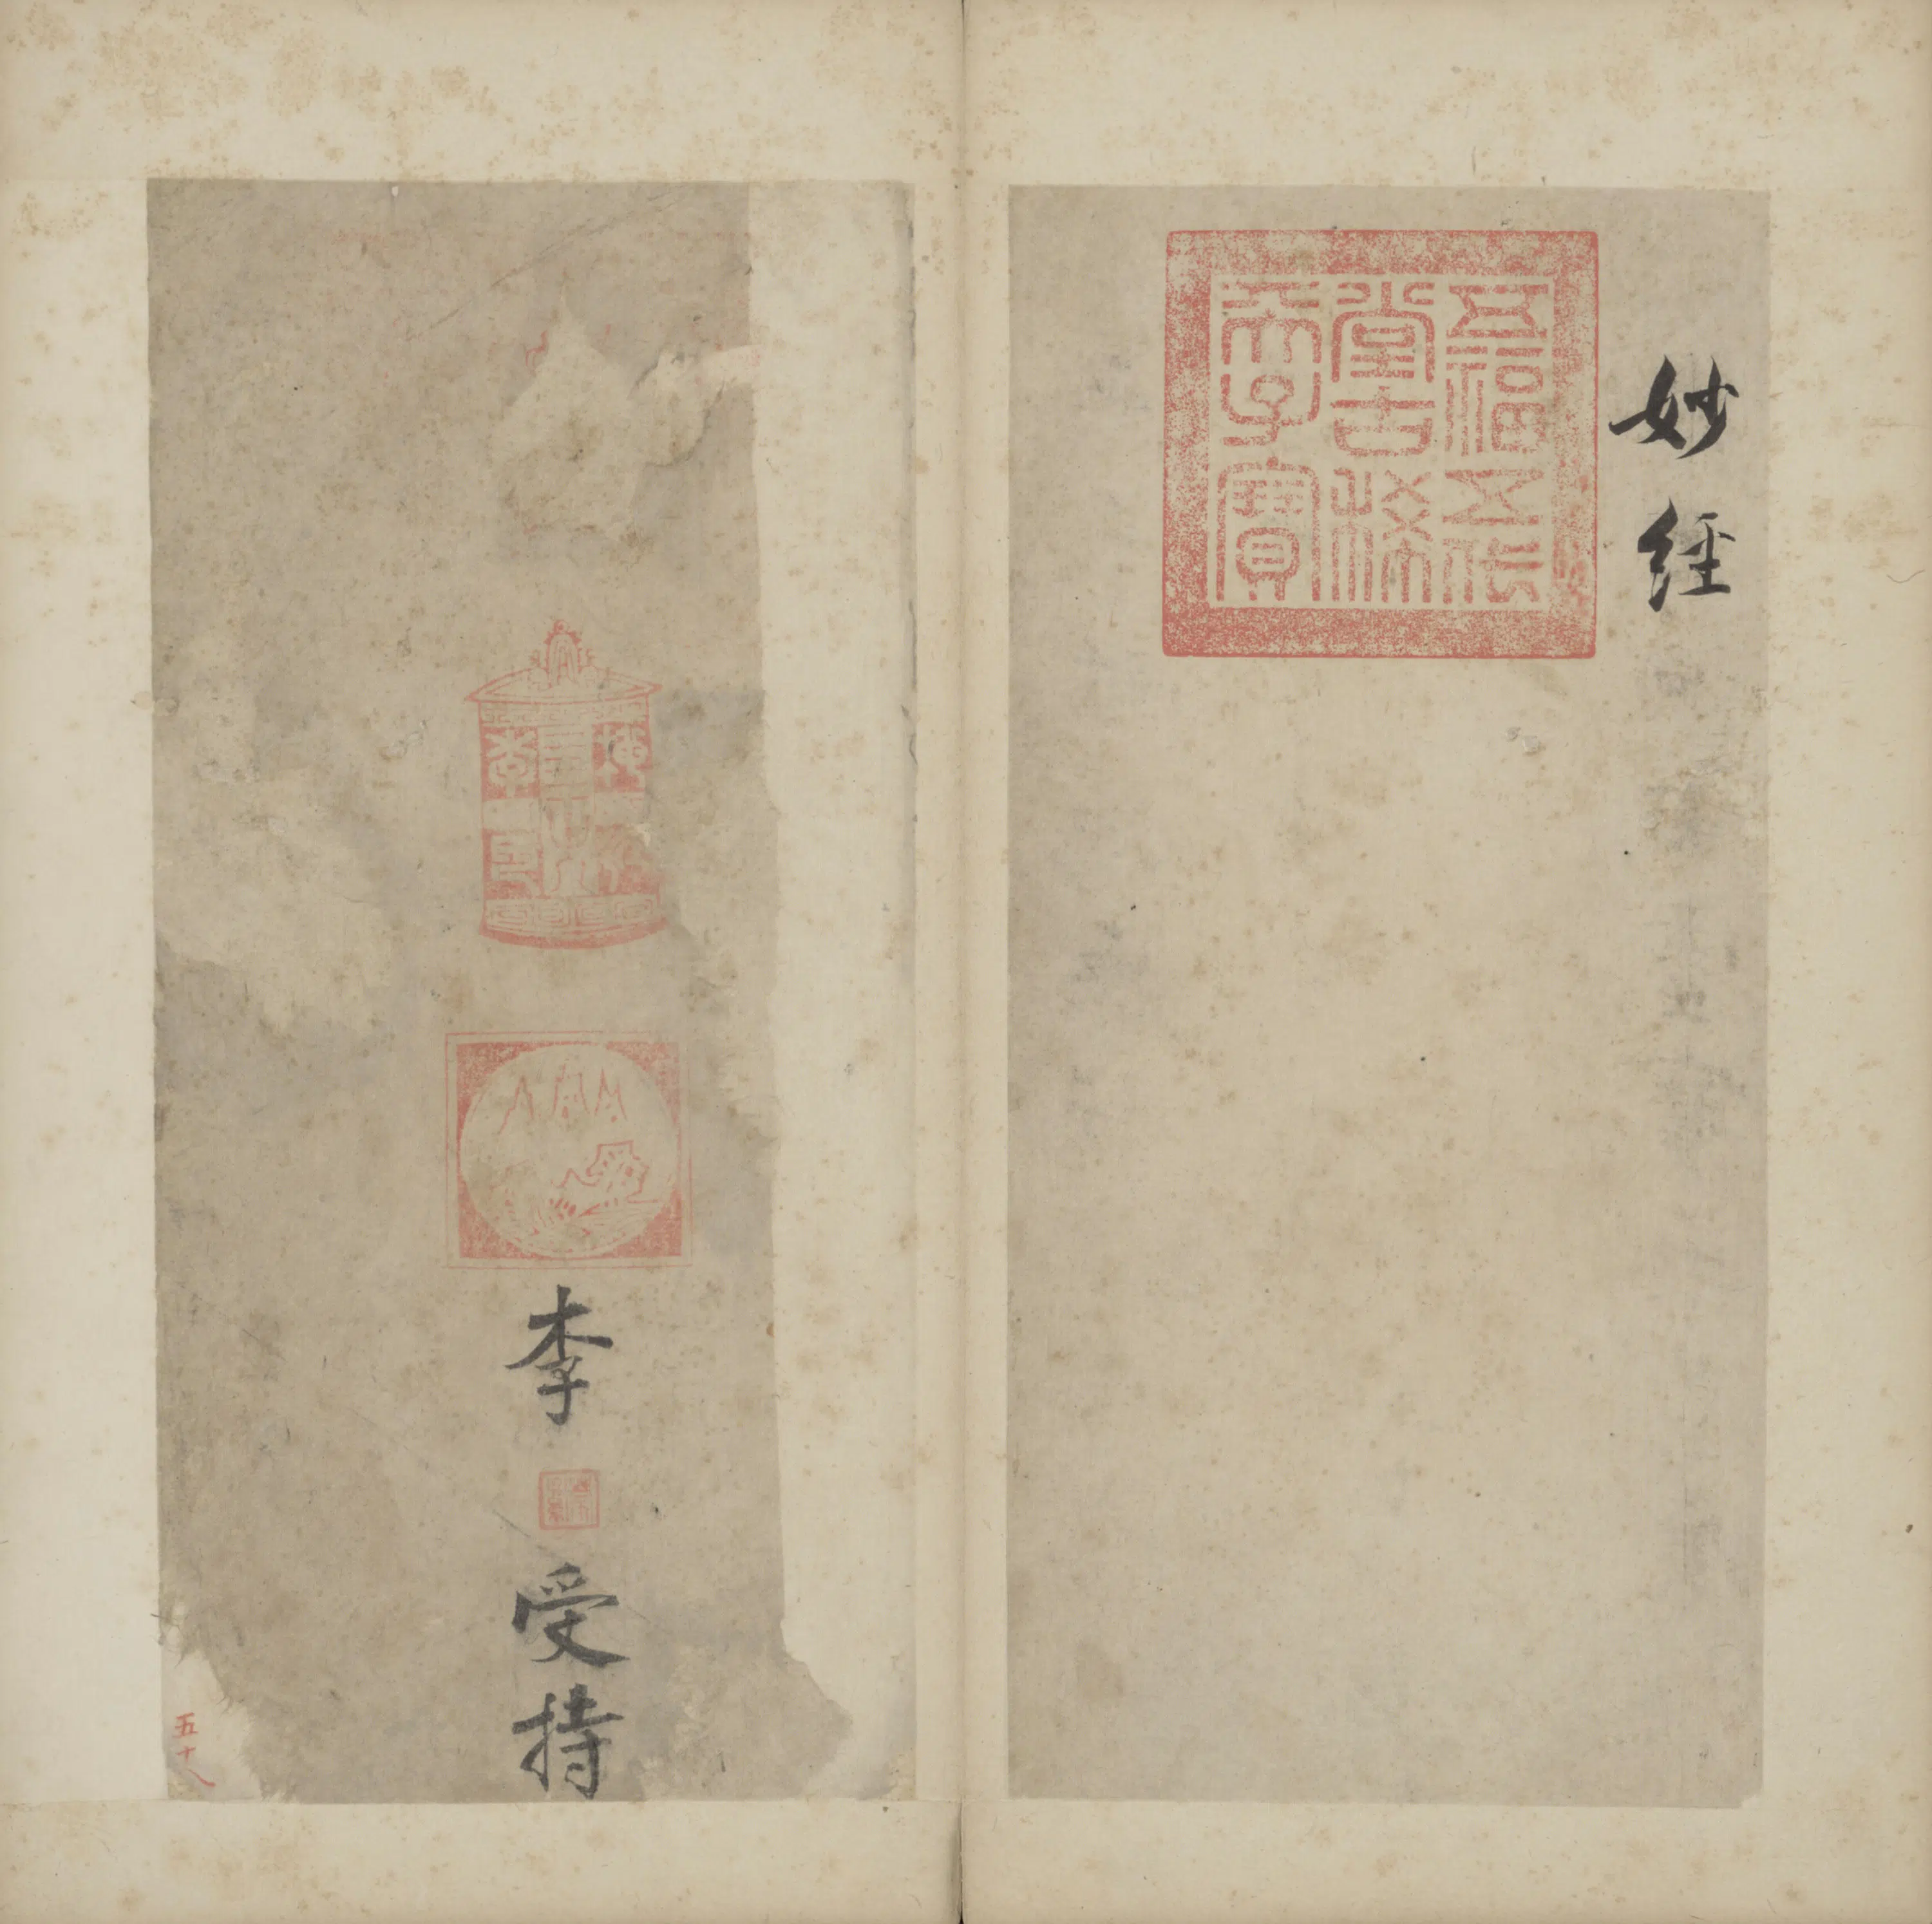 妙經
五福五代
堂古稀
天子寶
李
受持
五十八